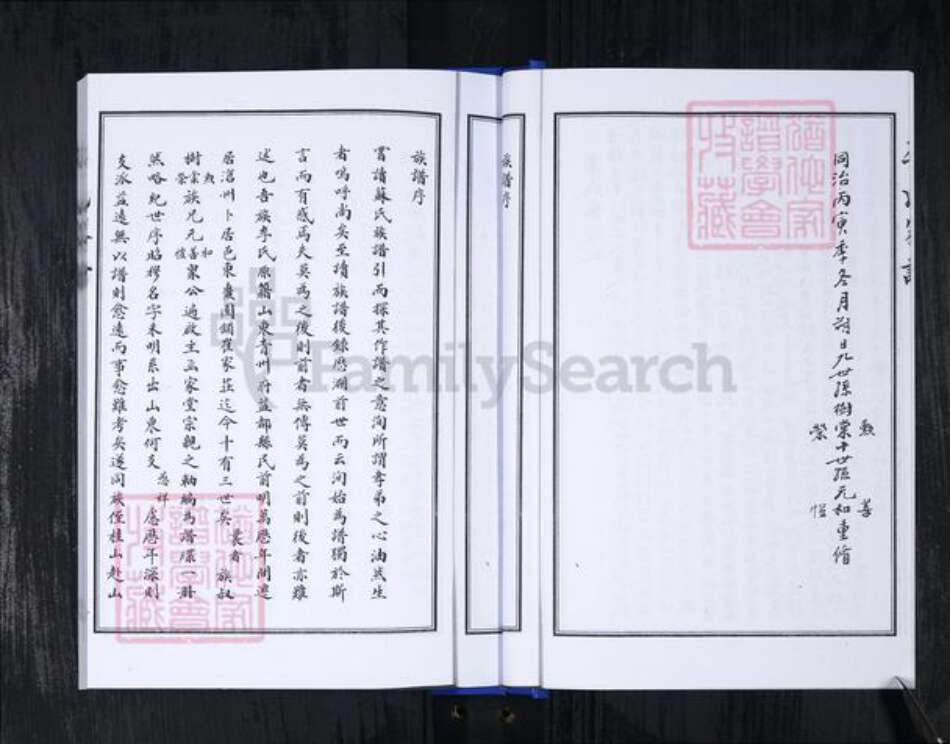 同治丙寅季冬月朔日九世孫樹棠十世孫元和重脩
勲 善
榮 愷
族譜序
族譜序
嘗讀蘇氏族譜引而探其作譜之意洵所謂孝弟之心油然生
者嗚呼尚矣至讀族譜後錄歷溯前世而云洵始為譜獨於斯
言而有感焉夫莫為之後則前者無傳莫為之前則後者亦難
述也吾族李氏原籍山東青州府益都縣民前明萬歷年間遷
居滄州卜居邑東 圈鎮崔家莊迄今十有三世矣 曩者 族叔
樹 勲 棠 榮 族兄元 和 善 愷 眾公遍啟主並家堂宗親之軸編為譜牒一冊
然略紀世序昭穆名字未明系出山東何支 派 應歷年深則
支派益遠無以譜則愈遠而事愈難考矣遂同族侄桂山赴山
猶他家譜學會收藏
猶他家譜學會收藏
FamilySearch